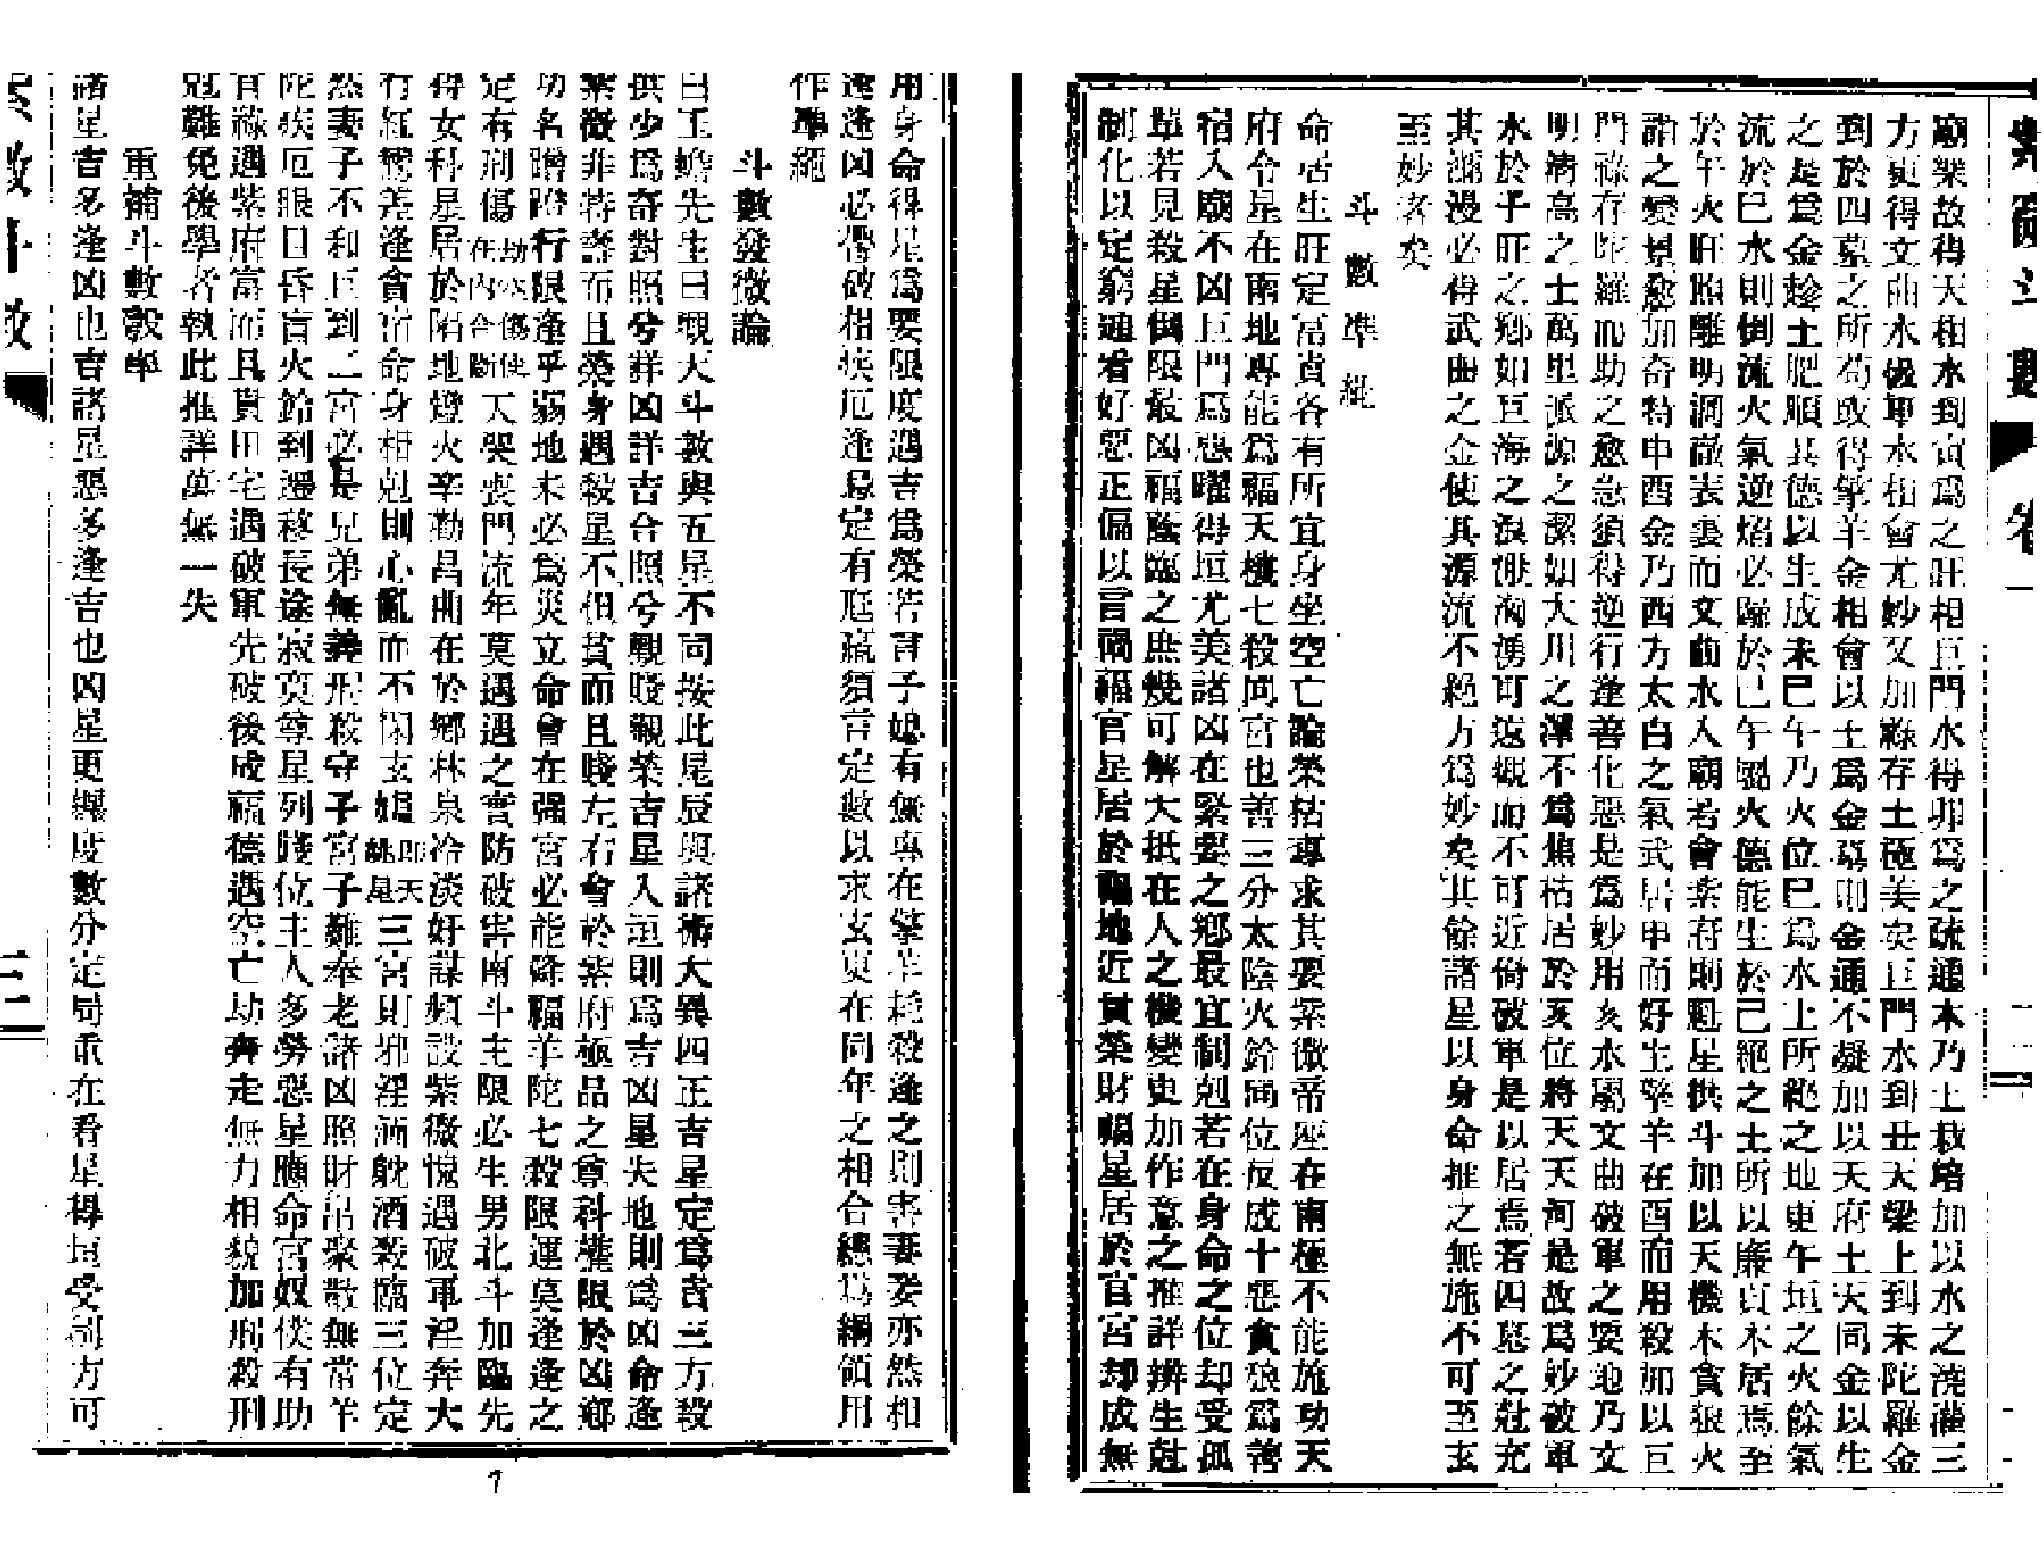 紫微斗數 卷一 二
廟樂故得天相水到寅爲之旺相巨門水得卯爲之疏通木乃土栽培加以水之澆灌三
方更得文曲水破軍水相會尤妙又加祿存土極美矣巨門水到丑天梁土到未陀羅金
到於四墓之所苟或得擎羊金相會以土爲金墓則金通不凝加以天府土天同金以生
之是爲金趁土肥順其德以生成未巳午乃火位巳爲水土所絕之地更午垣之火餘氣
流於巳水則倒流火氣逆焰必歸於巳午屬火德能生於巳絕之土所以廉貞木居焉至
於午火旺照離明洞徹表裏而文曲水入廟若會紫府則魁星拱斗加以天機木貪狼火
謂之變景愈加奇特申酉金乃西方太白之氣武居申而好生擎羊在酉而用殺加以巨
門祿存陀羅而助之愈急須得逆行逢善化惡是爲妙用亥水屬文曲破軍之要地乃文
明清高之士萬里派源之潔如大川之澤不爲焦枯居於亥位將天天河是故爲妙破軍
水於子旺之鄉如巨海之浪淜洶湧可遠觀而不可近倚破軍是以居焉若四墓之尅充
其瀰漫必得武曲之金使其源流不絕方爲妙矣其餘諸星以身命推之無施不可至玄
至妙者矣
斗數準繩
命居生旺定富貴各有所宜身坐空亡論榮枯專求其要紫微帝座在南極不能施功天
府令星在南地專能爲福天機七殺同宮也善三分太陰火鈴同位反成十惡貪狼爲善
宿入廟不凶巨門爲惡曜得垣尤美諸凶在緊要之鄉最宜制剋若在身命之位却受孤
單若見殺星倒限最凶福蔭臨之庶幾可解大抵在人之機變更加作意之推詳辨生尅
制化以定窮通看好惡正偏以言禍福官星居於福地近貴榮財福星居於官宮却成無
用身命得星爲要限度遇吉爲榮若言子媳有無專在擎羊耗殺逢之則害妻妾亦然相
逢逢凶必憯破相疾厄逢忌定有尫羸須言定數以求玄更在同年之相合總爲綱領用
作準繩
斗數發微論
白玉蟾先生曰觀天斗數與五星不同按此星辰與諸術大異四正吉星定爲吉三方殺
拱少爲奇對照兮詳凶詳吉合照兮觀賤觀榮吉星入垣則爲吉凶星失地則爲凶命逢
紫微非特壽而且榮身遇殺星不但貧而且賤左右會於紫府極品之尊科權限於凶鄉
功名蹭蹬行限逢乎弱地未必爲災立命會在强宮必能降福羊陀七殺限運莫逢逢之
定有刑傷劫空傷使在內合斷天哭喪門流年莫遇遇之實防破害南斗主限必生男北斗加臨先
得女科星居於陷地燈火辛勤昌曲在於鄉林泉冷淡奸謀頻設紫微愧遇破軍淫奔大
行紅鸞羞逢會宿命身相剋則心亂而不閑玄媼即天姚星三宮則邪淫湎躭酒殺臨三位定
然妻子不和巨到二宮必是兄弟無義刑殺守子宮子難奉老諸凶照財帛聚散無常羊
陀疾厄眼目昏盲火鈴到遷移長途寂寞尊星列賤位主人多勞惡星應命宮奴僕有助
官祿遇紫府富而且貴田宅遇破軍先破後成福德遇空亡劫奔走無力相貌加刑殺刑
尅難免後學者執此推詳萬無一失
重補斗數彀率
諸星吉多逢凶也吉諸星惡多逢吉也凶星更躔度數分定局重在看星得垣受制方可
紫微斗數 三